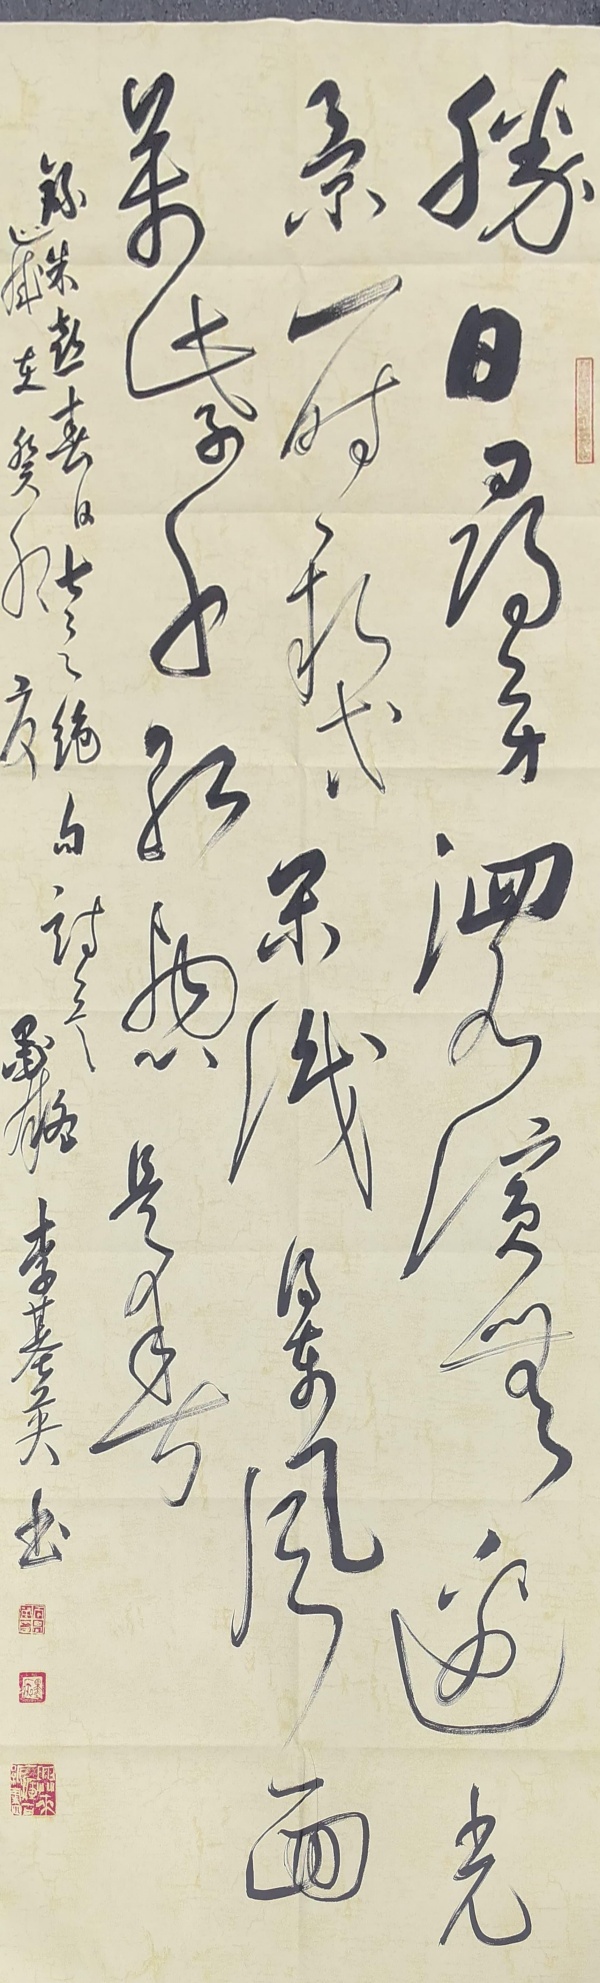 勝日尋芳泗水濱無邊光
景一時新等閒識得東風面
萬紫千紅總是春
錄朱熹春日七言絕句詩
歲在癸卯夏
李基英书